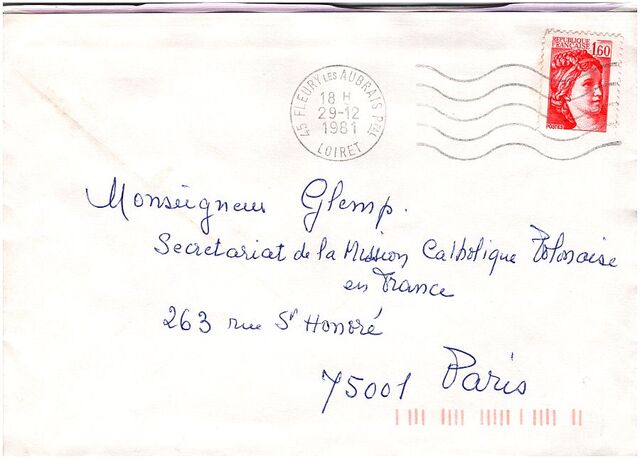 REPUBLIQUE FRANCAISE
1,60
POSTES
45 FLEURY LES AUBRAIS Pal
18 H
29-12
1981
LOIRET
Monseigneur Glemp.
Secretariat de la Mission Catholique Polonaise
en France
263 rue St Honoré
75001 Paris